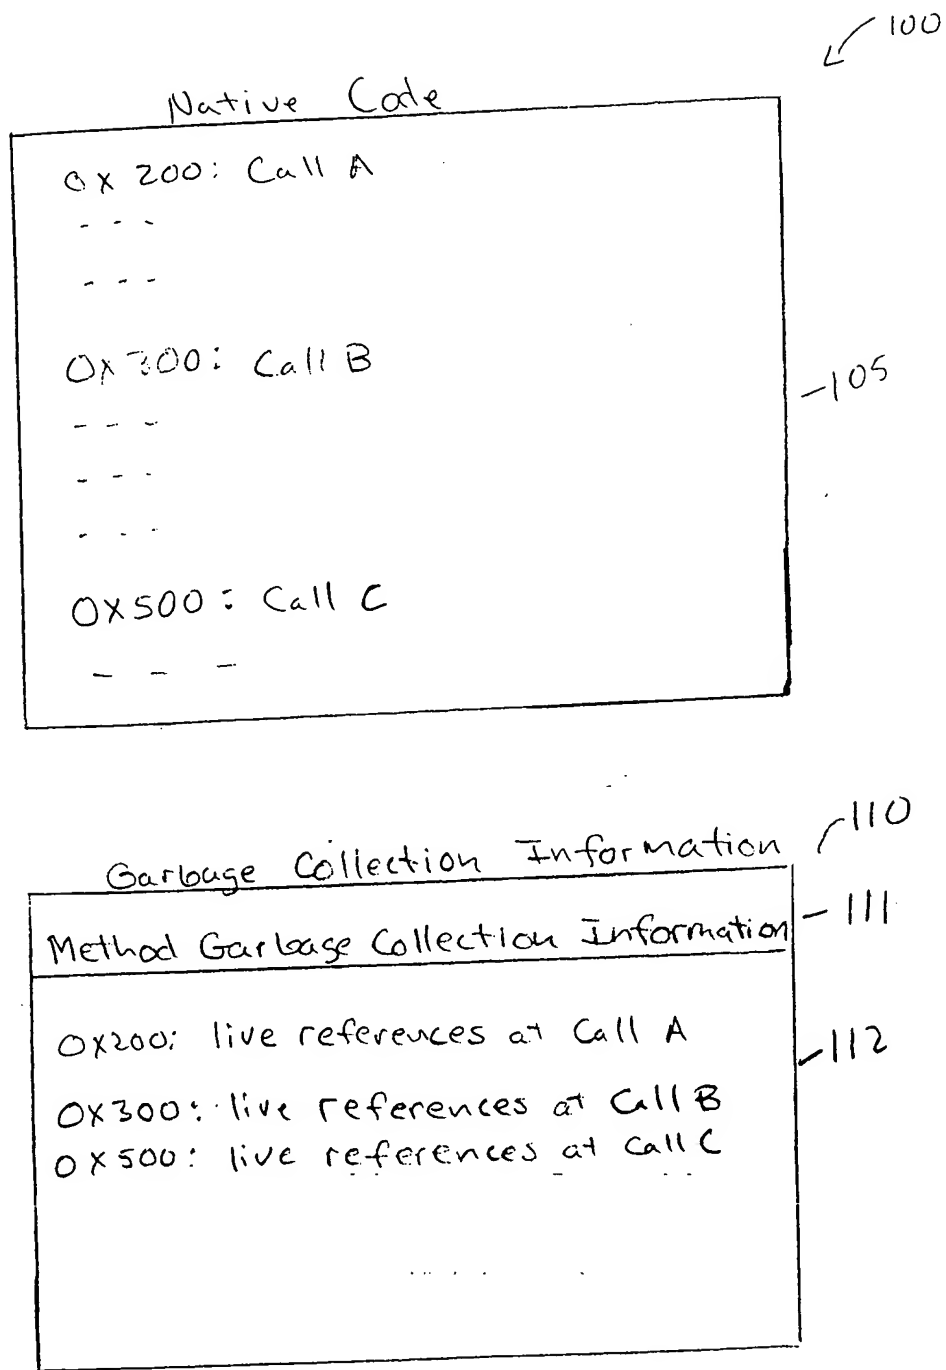 100
Native Code
0x200: Call A
- - -
- - -
0x300: Call B
- - -
- - -
- - -
0x500: Call C
- - -
105
Garbage Collection Information
110
Method Garbage Collection Information
111
0x200: live references at Call A
112
0x300: live references at Call B
0x500: live references at Call C